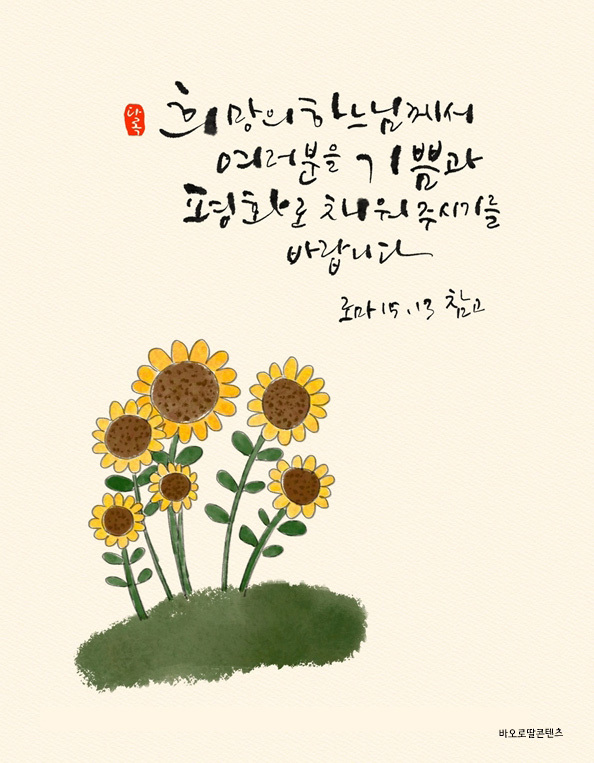 희망의 하느님께서
여러분을 기쁨과
평화로 채워 주시기를
바랍니다
로마 15.13 참고
바오로딸콘텐츠